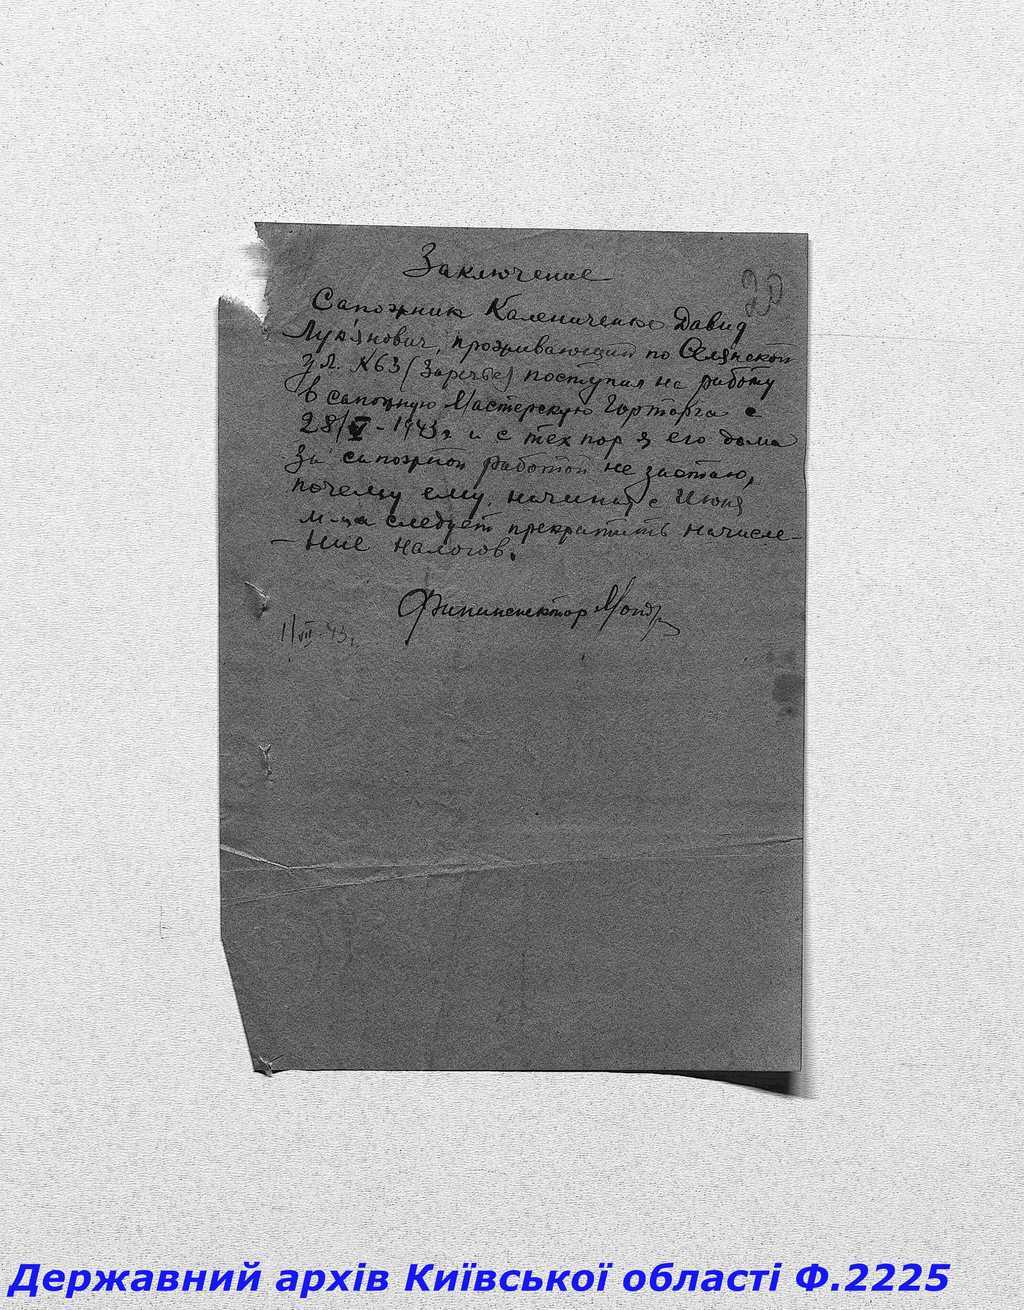 Заключение
20
Сапожник Калениченко Давид
Лук'янович, проживающий по Селянской
ул. №63 (Заречье) поступил на работу
в сапожную Мастерскую Горторга с
28/V - 1943г. и с тех пор я его дома
за сапожной работой не застаю,
почему ему, начиная с Июня
м-ца следует прекратить начисле-
- ние налогов.
Фининспектор
1/VII-43г.
Державний архів Київської області Ф.2225